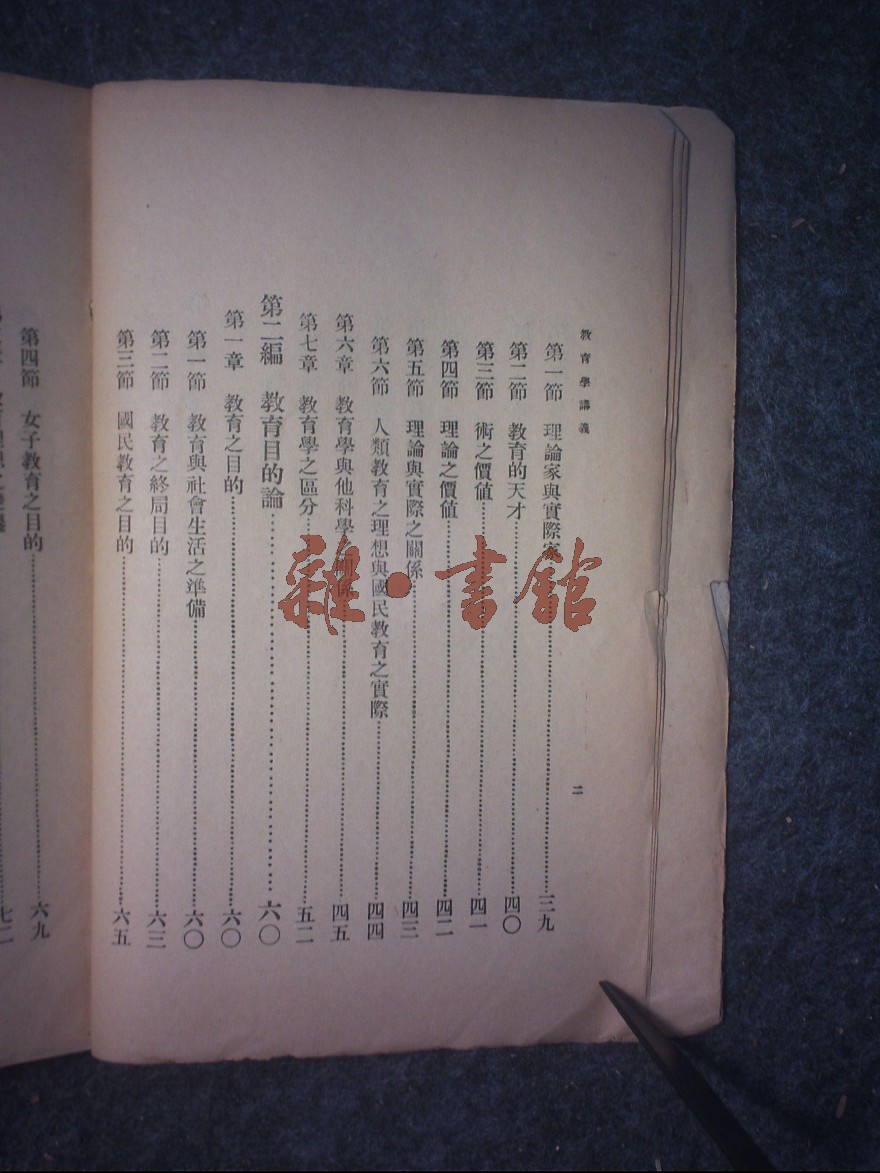 教育學講義
二
第一節 理論家與實際家 三九
第二節 教育的天才 四〇
第三節 術之價値 四一
第四節 理論之價値 四二
第五節 理論與實際之關係 四三
第六節 人類教育之理想與國民教育之實際 四四
第六章 教育學與他科學 關係 四五
第七章 教育學之區分 五二
第二編 教育目的論 六〇
第一章 教育之目的 六〇
第一節 教育與社會生活之準備 六〇
第二節 教育之終局目的 六三
第三節 國民教育之目的 六五
第四節 女子教育之目的 六九
七二
雜·書館